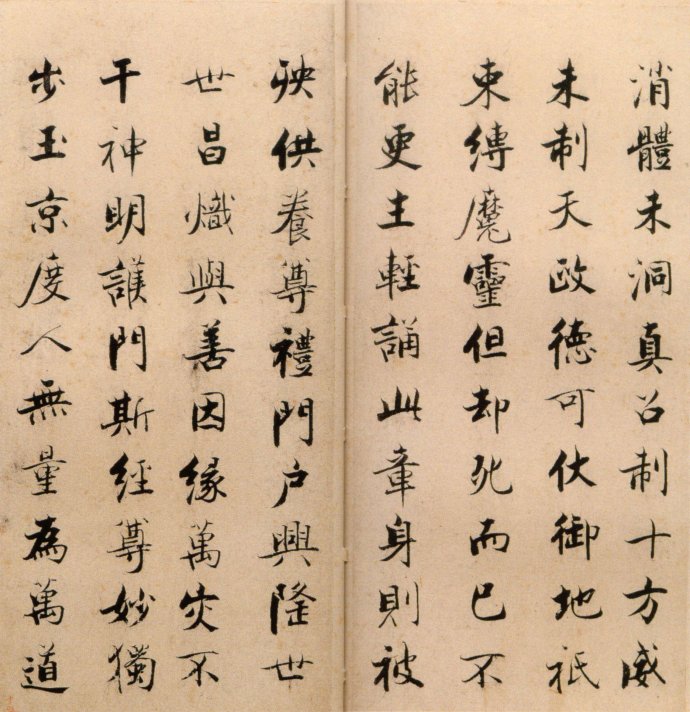 消體未洞真召制十方威
未制天政德可伏御地祇
束縛魔靈但却死而已不
能更生輕誦此章身則被
殃供養尊禮門戶興隆世
世昌熾與善因緣萬灾不
干神明護門斯經尊妙獨
步玉京度人無量為萬道